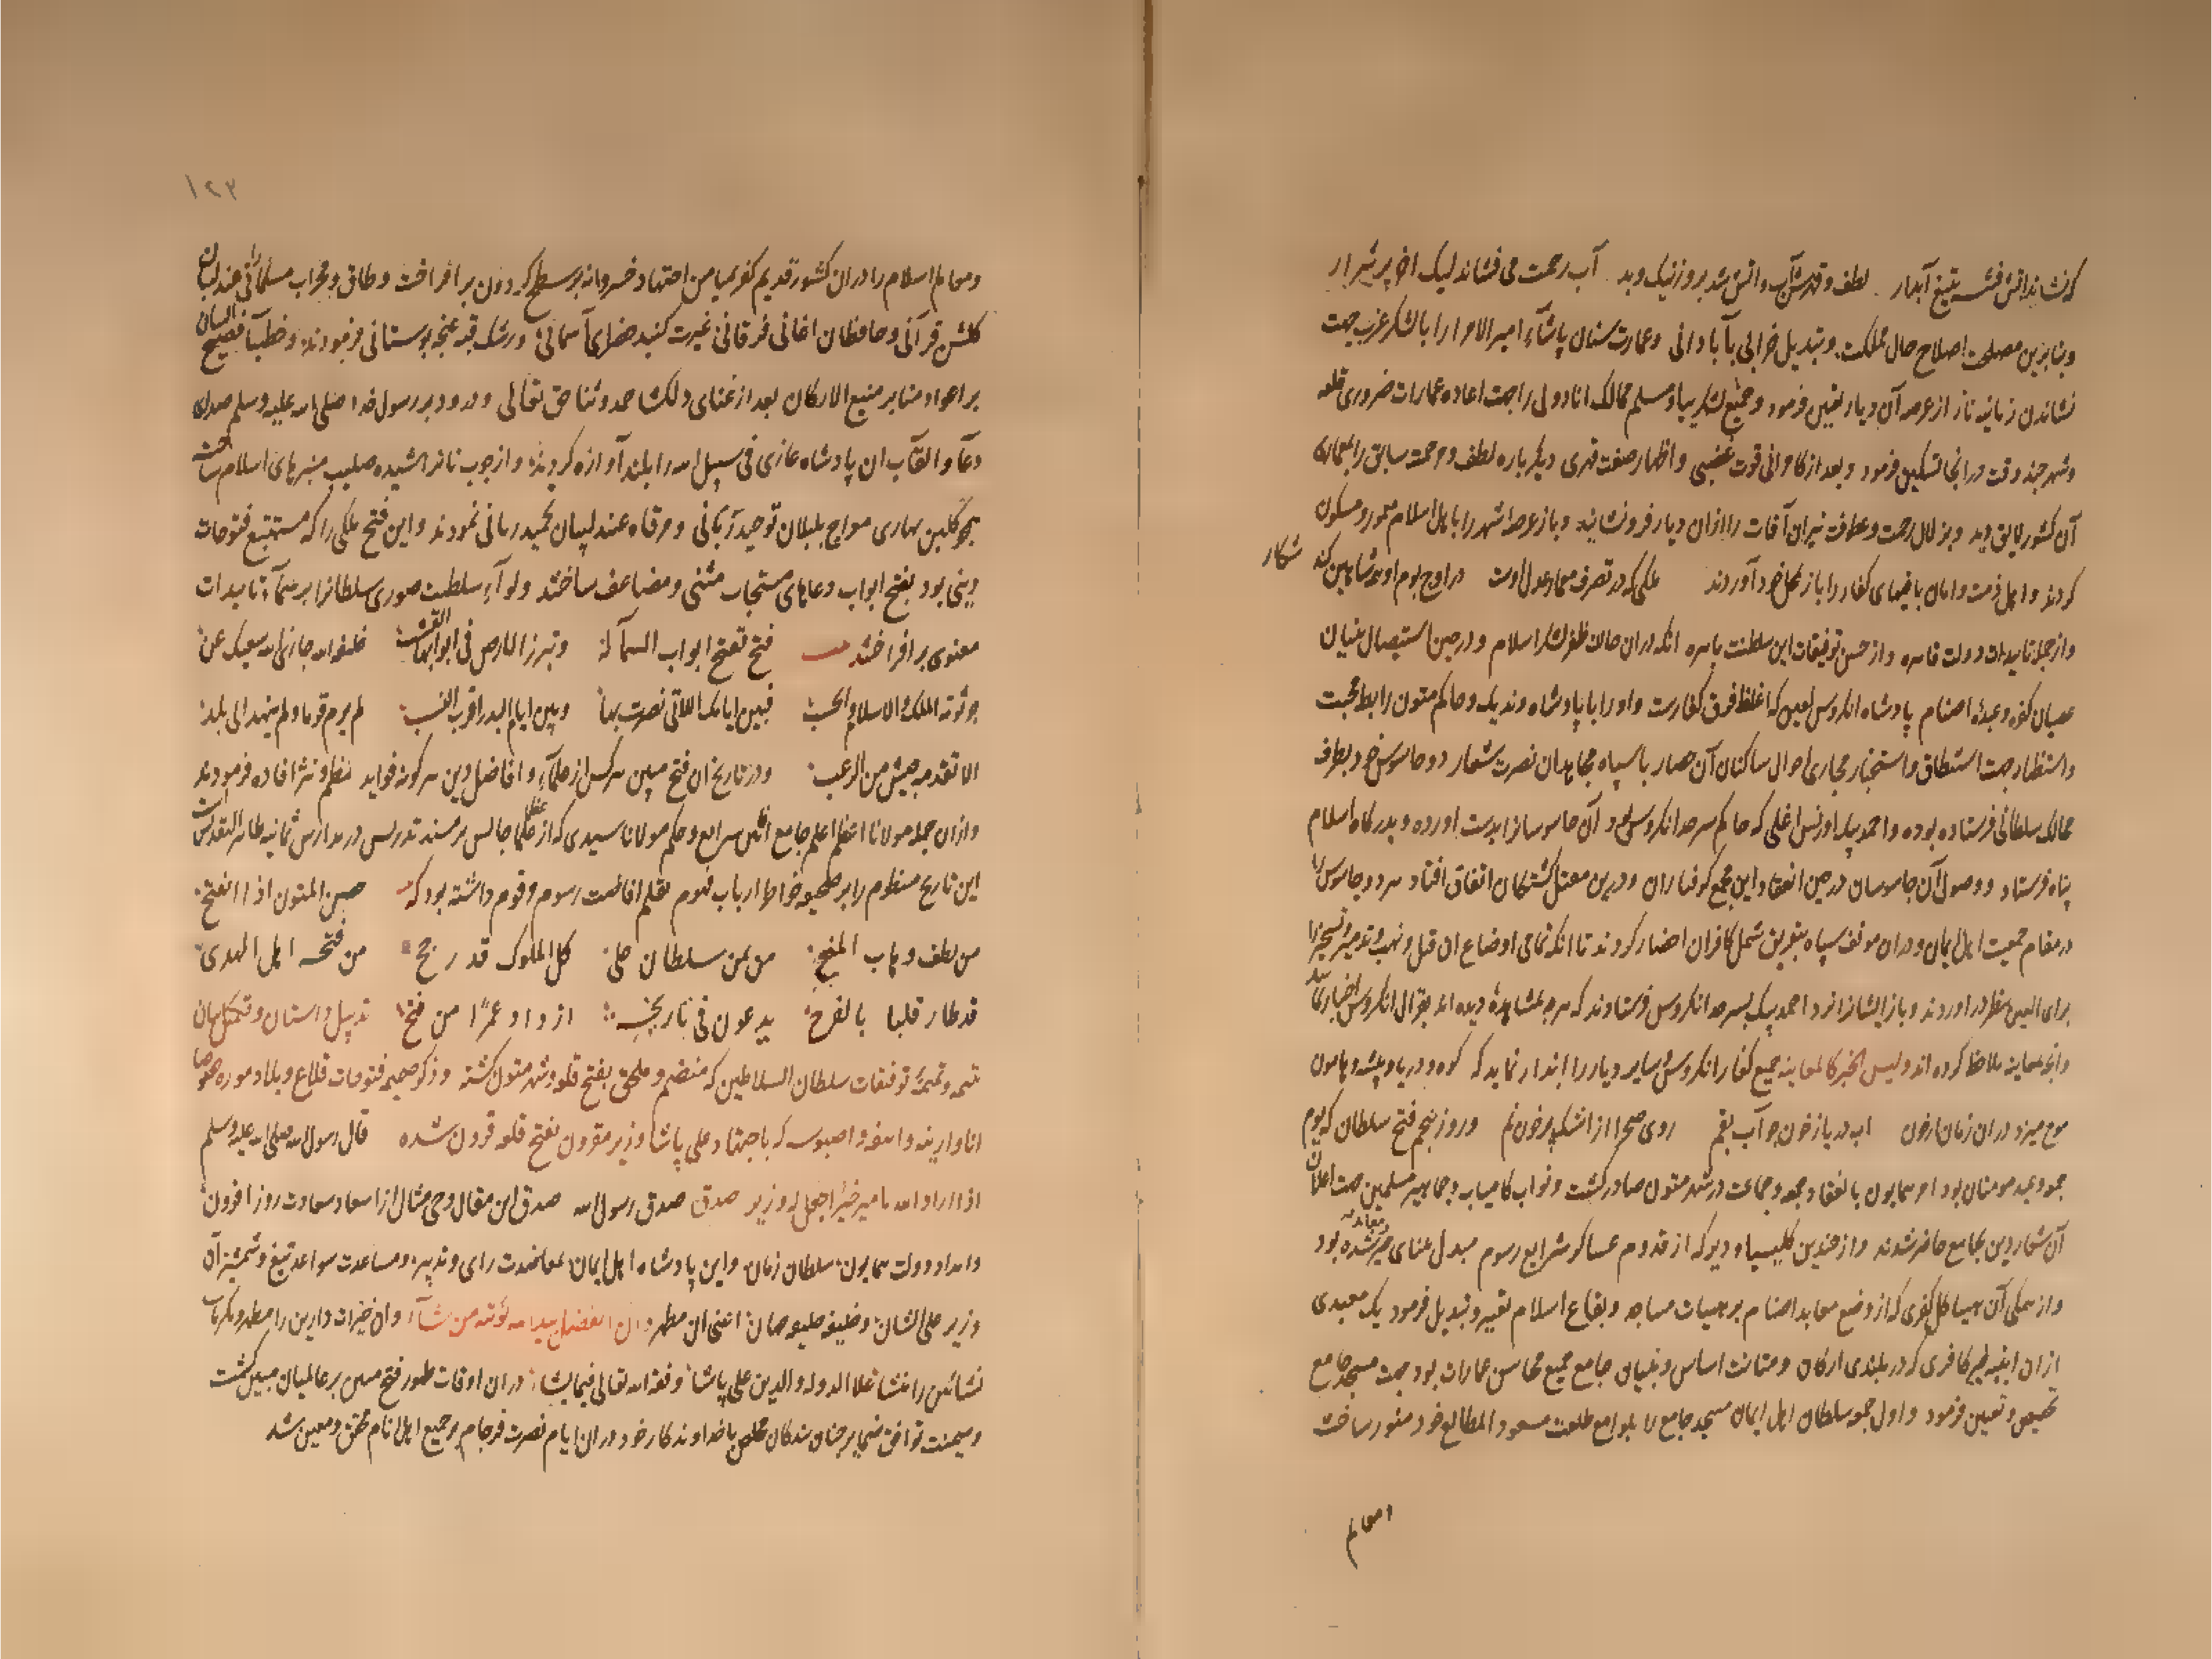 که نشاند آتش فتنه بتیغ آبدار لطف و قهرش آب و آتش شد بروز نیک و بد آب رحمت می فشاند لیک اخر پر شرار
و بنابرین مصلحت اصلاح حال مملکت و تبدیل خرابی بآبادانی و عمارت سنان پاشاء امیر الامرا را با لشکر عزب جهت
نشاندن زبانیه نار از عرصه آن دیار تعیین فرمود و جمیع لشکر بیاده و مسلم ممالک اناودلی را جهت اعاده عمارات ضروری قلعه
و شهر چند وقت در انجا تسکین فرمود و بعد از کامرانی قوت غضبی و اظهار صفت قهری دیکر باره لطف و مرحمت سابق را بمعماری
آن کشور لایق دید و بزلال رحمت و عطوفت نیران آفات را ازان دیار فرو نشانید و باز عرصه شهر را باهل اسلام معمور و مسکون
کردند و اهل ذمت و امان باقیهای کفار را باز بمحل خود آوردند ملکی که در تصرف معمار عدل اوست در اوج بوم او نبود شاهین کند شکار
و از جمله تاییدات دولت قاهره و از حسن توفیقات این سلطنت باهره انکه دران حالت ظفر لشکر اسلام و در حین استیصال بنیان
عصیان کفره و عبده اصنام پادشاه انکروس لعین که اغلظ فرق کفارست و او را با پادشاه وندیک و حاکم متون رابطه محبت
و استظهار جهت استنطاق و استخبار مجاری احوال ساکنان آن حصار با سپاه مجاهدان نصرت شعار دو جاسوس خود بطرف
ممالک سلطانی فرستاده بوده و احمد بیک اورنس اغلی که حاکم سرحد انکروس بود آن جاسوسانرا بدست اورده و بدرکاه اسلام
پناه فرستاد و وصول آن جاسوسان در حین انعقاد این مجمع کرفتاران و درین معتل کشتکان اتفاق افتاد هر دو جاسوس را
در مقام جمعیت اهل ایمان و دران موقف سپاه بتفریق شمل کافران احضار کردند تا انکه تمامی اوضاع ان قتل و نهب و تدمیر و تسخیر را
برای العین بنظر در اوردند و باز ایشانرا نزد احمد بیک بسرحد انکروس فرستادند که هرچه بمشاهده دیده اند بقرال انکروس اخبار نمایند
و انچه بمعاینه ملاحظه کرده اند و لیس الخبر کالمعاینه جمیع کفار انکروس و سایر دیار را انذار نماید که کوه و دریا و بیشه و هامون
موج میزد دران زمان از خون اب دریا ز خون چو آب بقم روی صحرا از اشک پر خون نم و روز پنجم فتح سلطان که یوم
جمعه و عید مومنان بود امر همایون بانعقاد جمعه و جماعت در شهر متون صادر کشت و نواب کامیاب و جماهیر مسلمین جهت اعلان
آن شعار دین بجامع حاضر شدند و از چندین کلیسیا و دیر که از قدوم عساکر شرایع رسوم مبدل بمعابد خیر شده بود
و از همکی آن هیاکل کفری که از وضع معابد اصنام بر هییات مساجد و بقاع اسلام تغییر و تبدیل فرمود یک معبدی
ازان ابنیه غیر کافری که در بلندی ارکان و متانت اساس و بنیان جامع جمیع محاسن عمارات بود جهت مسجد جامع
تخصیص و تعیین فرمود و اول جمعه سلطان اهل ایمان مسجد جامع را بلوامع طلعت مسعود المطالع خود منور ساخت
و معالم
۱۲۳
و معالم اسلام را دران کشور قدیم کفر بمیامن اجتهاد خسروانه بر سطح کردون بر افراخت و طاق و محراب مسلمانی را عندلیبان
کلشن قرآنی و حافظان اغانی فرقانی غیرت کنبد خضرای آسمانی و رشک قبه غنچه بوستانی فرمودند و خطبآء فصیح اللسان
بر اعواد منابر منیع الارکان بعد از غنای دلکشا حمد و ثناء حق تعالی و درود بر رسول خدا صلی الله علیه وسلم صدای
دعآ و القآب ان پادشاه غازی فی سبیل الله را بلند آوازه کردند و از چوب ناتراشیده صلیب منبرهای اسلام ساخت
همچو کلبن بهاری معراج بلبلان توحید ربانی و مرقاه عندلیبان تحمید ربانی نمودند و این فتح ملکی را که مستتبع فتوحات
دینی بود بفتح ابواب دعاهای مستجاب مثنی و مضاعف ساختند و لوآء سلطنت صوری سلطانرا بر سمآء تاییدات
معنوی بر افراختند فتح تفتح ابواب السمآء له و تبرز الارض فی اثوابها القشب خلیفه الله جازی الله سعیک عن
جرثومه الملک و الاسلام و الحسب فبین ایامک اللاتی نصرت بها و بین ایام البدر اقرب النسب لم یرم قوما و لم ینهد الی بلد
الا تقدمه جیش من الرعب و در تاریخ ان فتح مبین هرکس از علمآء و افاضل دین هر کونه فواید نظم و نثر افاده فرمودند
و ازان جمله مولانا اعظم اعلم جامع اشتات شرایع و حکم مولانا سیدی که از عظما جالس بر مسند تدریس در مدارس ثمانیه
این تاریخ منظوم را بر صحیفه خواطر ارباب فهوم بقلم افاضت رسوم مرقوم داشته بود که حصن المتون اذا انفتح
من لطف وهاب المنح من یمن سلطان علی کل الملوک قد رجح من فتحه اهل الهدی
قد طار قلبا بالفرح یدعون فی تاریخه ازداد عمرا من فتح تذییل داستان و تکمیل بیان
تتمه و تیمن توفیقات سلطان السلاطین که منضم و ملحق بفتح قلعه و شهر متون کشته و ذکر ضمیمه فتوحات قلاع و بلاد موره خصوصا
که باجتهاد علی پاشا وزیر مقرون بفتح قلعه قرون شده قال رسول الله صلی الله علیه وسلم
اذا اراد الله بامیر خیرا جعل له وزیر صدق صدق رسول الله صدق این مقال وحی مثال از اسعاد سعادت روز افزون
و امداد دولت همایون سلطان زمان و این پادشاه اهل ایمان بمعاضدت رای و تدبیر و مساعدت سواعد تیغ و شمشیر آن
وزیر علی الشان و خلیفه اعنی ان مظهر و ان الفضل بید الله یوتیه من یشآء و ان خیرات دارین را مصدر و مکرمات
علا الدوله و الدین علی پاشا وفقه الله تعالی فیما یشاء دران اوقات ظهور فتح مبین بر عالمیان مبین کشت
و میمنت توافق ضمایر چنان بندکان مخلص با خداوندکار خود دران ایام نصرت فرجام بر جمیع اهل انام محقق و معین شد